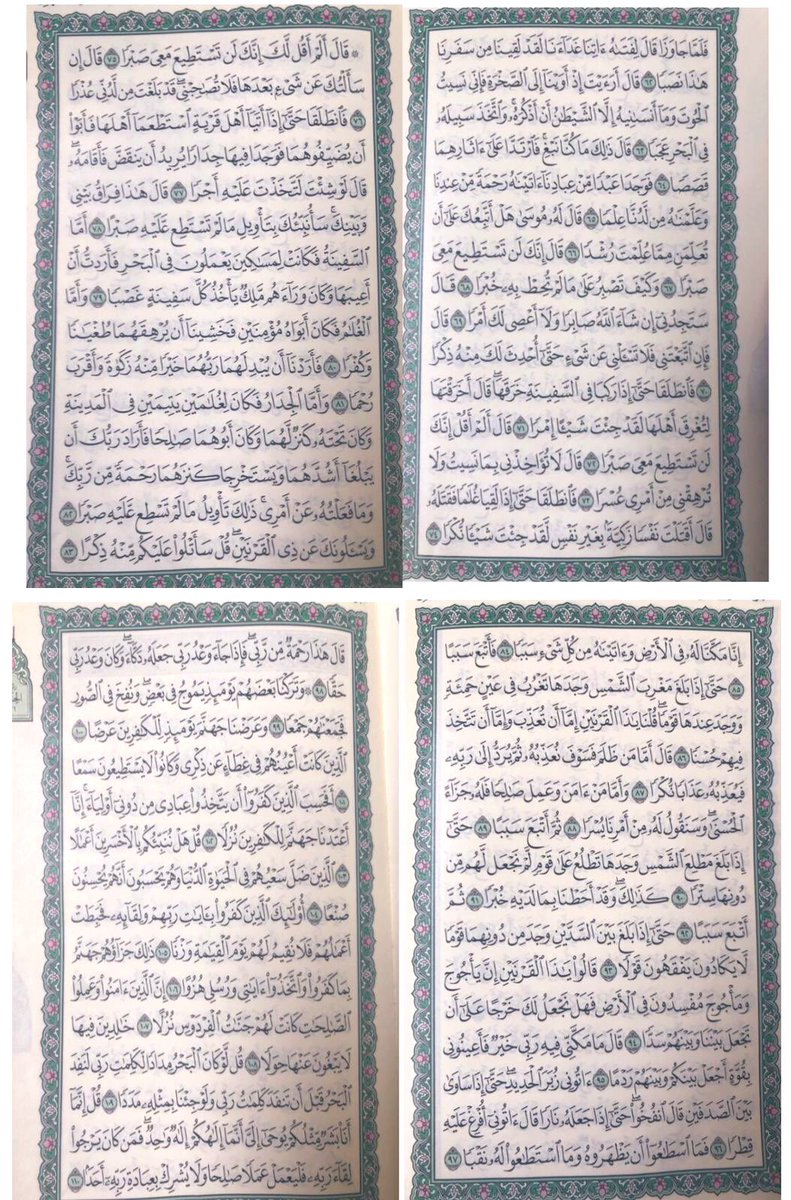 فَلَمَّا جَاوَزَا قَالَ لِفَتَىٰهُ ءَاتِنَا غَدَآءَنَا لَقَدْ لَقِينَا مِن سَفَرِنَا
هَٰذَا نَصَبًا ٦٢ قَالَ أَرَءَيْتَ إِذْ أَوَيْنَآ إِلَى ٱلصَّخْرَةِ فَإِنِّي نَسِيتُ
ٱلْحُوتَ وَمَآ أَنسَىٰنِيهُ إِلَّا ٱلشَّيْطَٰنُ أَنْ أَذْكُرَهُۥ وَٱتَّخَذَ سَبِيلَهُۥ
فِي ٱلْبَحْرِ عَجَبًا ٦٣ قَالَ ذَٰلِكَ مَا كُنَّا نَبْغِ فَٱرْتَدَّا عَلَىٰٓ ءَاثَارِهِمَا
قَصَصًا ٦٤ فَوَجَدَا عَبْدًا مِّنْ عِبَادِنَآ ءَاتَيْنَٰهُ رَحْمَةً مِّنْ عِندِنَا
وَعَلَّمْنَٰهُ مِن لَّدُنَّا عِلْمًا ٦٥ قَالَ لَهُۥ مُوسَىٰ هَلْ أَتَّبِعُكَ عَلَىٰٓ أَن
تُعَلِّمَنِ مِمَّا عُلِّمْتَ رُشْدًا ٦٦ قَالَ إِنَّكَ لَن تَسْتَطِيعَ مَعِيَ
صَبْرًا ٦٧ وَكَيْفَ تَصْبِرُ عَلَىٰ مَا لَمْ تُحِطْ بِهِۦ خُبْرًا ٦٨ قَالَ
سَتَجِدُنِيٓ إِن شَآءَ ٱللَّهُ صَابِرًا وَلَآ أَعْصِي لَكَ أَمْرًا ٦٩ قَالَ
فَإِنِ ٱتَّبَعْتَنِي فَلَا تَسْـَٔلْنِي عَن شَيْءٍ حَتَّىٰٓ أُحْدِثَ لَكَ مِنْهُ ذِكْرًا
٧٠ فَٱنطَلَقَا حَتَّىٰٓ إِذَا رَكِبَا فِي ٱلسَّفِينَةِ خَرَقَهَا ۖ قَالَ أَخَرَقْتَهَا
لِتُغْرِقَ أَهْلَهَا لَقَدْ جِئْتَ شَيْـًٔا إِمْرًا ٧١ قَالَ أَلَمْ أَقُلْ إِنَّكَ
لَن تَسْتَطِيعَ مَعِيَ صَبْرًا ٧٢ قَالَ لَا تُؤَاخِذْنِي بِمَا نَسِيتُ وَلَا
تُرْهِقْنِي مِنْ أَمْرِي عُسْرًا ٧٣ فَٱنطَلَقَا حَتَّىٰٓ إِذَا لَقِيَا غُلَٰمًا فَقَتَلَهُۥ
قَالَ أَقَتَلْتَ نَفْسًا زَكِيَّةًۢ بِغَيْرِ نَفْسٍ لَّقَدْ جِئْتَ شَيْـًٔا نُّكْرًا ٧٤
۞ قَالَ أَلَمْ أَقُل لَّكَ إِنَّكَ لَن تَسْتَطِيعَ مَعِيَ صَبْرًا ٧٥ قَالَ إِن
سَأَلْتُكَ عَن شَيْءٍۭ بَعْدَهَا فَلَا تُصَٰحِبْنِي ۖ قَدْ بَلَغْتَ مِن لَّدُنِّي عُذْرًا
٧٦ فَٱنطَلَقَا حَتَّىٰٓ إِذَآ أَتَيَآ أَهْلَ قَرْيَةٍ ٱسْتَطْعَمَآ أَهْلَهَا فَأَبَوْا۟
أَن يُضَيِّفُوهُمَا فَوَجَدَا فِيهَا جِدَارًا يُرِيدُ أَن يَنقَضَّ فَأَقَامَهُۥ ۖ
قَالَ لَوْ شِئْتَ لَتَّخَذْتَ عَلَيْهِ أَجْرًا ٧٧ قَالَ هَٰذَا فِرَاقُ بَيْنِي
وَبَيْنِكَ ۚ سَأُنَبِّئُكَ بِتَأْوِيلِ مَا لَمْ تَسْتَطِع عَّلَيْهِ صَبْرًا ٧٨ أَمَّا
ٱلسَّفِينَةُ فَكَانَتْ لِمَسَٰكِينَ يَعْمَلُونَ فِي ٱلْبَحْرِ فَأَرَدتُّ أَنْ
أَعِيبَهَا وَكَانَ وَرَآءَهُم مَّلِكٌ يَأْخُذُ كُلَّ سَفِينَةٍ غَصْبًا ٧٩ وَأَمَّا
ٱلْغُلَٰمُ فَكَانَ أَبَوَاهُ مُؤْمِنَيْنِ فَخَشِينَآ أَن يُرْهِقَهُمَا طُغْيَٰنًا
وَكُفْرًا ٨٠ فَأَرَدْنَآ أَن يُبْدِلَهُمَا رَبُّهُمَا خَيْرًا مِّنْهُ زَكَوٰةً وَأَقْرَبَ
رُحْمًا ٨١ وَأَمَّا ٱلْجِدَارُ فَكَانَ لِغُلَٰمَيْنِ يَتِيمَيْنِ فِي ٱلْمَدِينَةِ
وَكَانَ تَحْتَهُۥ كَنزٌ لَّهُمَا وَكَانَ أَبُوهُمَا صَٰلِحًا فَأَرَادَ رَبُّكَ أَن
يَبْلُغَآ أَشُدَّهُمَا وَيَسْتَخْرِجَا كَنزَهُمَا رَحْمَةً مِّن رَّبِّكَ ۚ
وَمَا فَعَلْتُهُۥ عَنْ أَمْرِي ۚ ذَٰلِكَ تَأْوِيلُ مَا لَمْ تَسْطِع عَّلَيْهِ صَبْرًا ٨٢
وَيَسْـَٔلُونَكَ عَن ذِي ٱلْقَرْنَيْنِ ۖ قُلْ سَأَتْلُوا۟ عَلَيْكُم مِّنْهُ ذِكْرًا ٨٣
إِنَّا مَكَّنَّا لَهُۥ فِي ٱلْأَرْضِ وَءَاتَيْنَٰهُ مِن كُلِّ شَيْءٍ سَبَبًا ٨٤ فَأَتْبَعَ سَبَبًا
٨٥ حَتَّىٰٓ إِذَا بَلَغَ مَغْرِبَ ٱلشَّمْسِ وَجَدَهَا تَغْرُبُ فِي عَيْنٍ حَمِئَةٍ
وَوَجَدَ عِندَهَا قَوْمًا ۗ قُلْنَا يَٰذَا ٱلْقَرْنَيْنِ إِمَّآ أَن تُعَذِّبَ وَإِمَّآ أَن تَتَّخِذَ
فِيهِمْ حُسْنًا ٨٦ قَالَ أَمَّا مَن ظَلَمَ فَسَوْفَ نُعَذِّبُهُۥ ثُمَّ يُرَدُّ إِلَىٰ رَبِّهِۦ
فَيُعَذِّبُهُۥ عَذَابًا نُّكْرًا ٨٧ وَأَمَّا مَنْ ءَامَنَ وَعَمِلَ صَٰلِحًا فَلَهُۥ جَزَآءً
ٱلْحُسْنَىٰ ۖ وَسَنَقُولُ لَهُۥ مِنْ أَمْرِنَا يُسْرًا ٨٨ ثُمَّ أَتْبَعَ سَبَبًا ٨٩ حَتَّىٰٓ
إِذَا بَلَغَ مَطْلِعَ ٱلشَّمْسِ وَجَدَهَا تَطْلُعُ عَلَىٰ قَوْمٍ لَّمْ نَجْعَل لَّهُم مِّن
دُونِهَا سِتْرًا ٩٠ كَذَٰلِكَ وَقَدْ أَحَطْنَا بِمَا لَدَيْهِ خُبْرًا ٩١ ثُمَّ
أَتْبَعَ سَبَبًا ٩٢ حَتَّىٰٓ إِذَا بَلَغَ بَيْنَ ٱلسَّدَّيْنِ وَجَدَ مِن دُونِهِمَا قَوْمًا
لَّا يَكَادُونَ يَفْقَهُونَ قَوْلًا ٩٣ قَالُوا۟ يَٰذَا ٱلْقَرْنَيْنِ إِنَّ يَأْجُوجَ
وَمَأْجُوجَ مُفْسِدُونَ فِي ٱلْأَرْضِ فَهَلْ نَجْعَلُ لَكَ خَرْجًا عَلَىٰٓ أَن
تَجْعَلَ بَيْنَنَا وَبَيْنَهُمْ سَدًّا ٩٤ قَالَ مَا مَكَّنِّي فِيهِ رَبِّي خَيْرٌ فَأَعِينُونِي
بِقُوَّةٍ أَجْعَلْ بَيْنَكُمْ وَبَيْنَهُمْ رَدْمًا ٩٥ ءَاتُونِي زُبَرَ ٱلْحَدِيدِ ۖ حَتَّىٰٓ إِذَا سَاوَىٰ
بَيْنَ ٱلصَّدَفَيْنِ قَالَ ٱنفُخُوا۟ ۖ حَتَّىٰٓ إِذَا جَعَلَهُۥ نَارًا قَالَ ءَاتُونِيٓ أُفْرِغْ عَلَيْهِ
قِطْرًا ٩٦ فَمَا ٱسْطَٰعُوٓا۟ أَن يَظْهَرُوهُ وَمَا ٱسْتَطَٰعُوا۟ لَهُۥ نَقْبًا ٩٧
قَالَ هَٰذَا رَحْمَةٌ مِّن رَّبِّي ۖ فَإِذَا جَآءَ وَعْدُ رَبِّي جَعَلَهُۥ دَكَّآءَ ۖ وَكَانَ وَعْدُ رَبِّي
حَقًّا ٩٨ ۞ وَتَرَكْنَا بَعْضَهُمْ يَوْمَئِذٍ يَمُوجُ فِي بَعْضٍ ۖ وَنُفِخَ فِي ٱلصُّورِ
فَجَمَعْنَٰهُمْ جَمْعًا ٩٩ وَعَرَضْنَا جَهَنَّمَ يَوْمَئِذٍ لِّلْكَٰفِرِينَ عَرْضًا ١٠٠
ٱلَّذِينَ كَانَتْ أَعْيُنُهُمْ فِي غِطَآءٍ عَن ذِكْرِي وَكَانُوا۟ لَا يَسْتَطِيعُونَ سَمْعًا
١٠١ أَفَحَسِبَ ٱلَّذِينَ كَفَرُوٓا۟ أَن يَتَّخِذُوا۟ عِبَادِي مِن دُونِيٓ أَوْلِيَآءَ ۚ إِنَّآ
أَعْتَدْنَا جَهَنَّمَ لِلْكَٰفِرِينَ نُزُلًا ١٠٢ قُلْ هَلْ نُنَبِّئُكُم بِٱلْأَخْسَرِينَ أَعْمَٰلًا
١٠٣ ٱلَّذِينَ ضَلَّ سَعْيُهُمْ فِي ٱلْحَيَوٰةِ ٱلدُّنْيَا وَهُمْ يَحْسَبُونَ أَنَّهُمْ يُحْسِنُونَ
صُنْعًا ١٠٤ أُو۟لَٰٓئِكَ ٱلَّذِينَ كَفَرُوا۟ بِـَٔايَٰتِ رَبِّهِمْ وَلِقَآئِهِۦ فَحَبِطَتْ
أَعْمَٰلُهُمْ فَلَا نُقِيمُ لَهُمْ يَوْمَ ٱلْقِيَٰمَةِ وَزْنًا ١٠٥ ذَٰلِكَ جَزَآؤُهُمْ جَهَنَّمُ
بِمَا كَفَرُوا۟ وَٱتَّخَذُوٓا۟ ءَايَٰتِي وَرُسُلِي هُزُوًا ١٠٦ إِنَّ ٱلَّذِينَ ءَامَنُوا۟ وَعَمِلُوا۟
ٱلصَّٰلِحَٰتِ كَانَتْ لَهُمْ جَنَّٰتُ ٱلْفِرْدَوْسِ نُزُلًا ١٠٧ خَٰلِدِينَ فِيهَا
لَا يَبْغُونَ عَنْهَا حِوَلًا ١٠٨ قُل لَّوْ كَانَ ٱلْبَحْرُ مِدَادًا لِّكَلِمَٰتِ رَبِّي لَنَفِدَ
ٱلْبَحْرُ قَبْلَ أَن تَنفَدَ كَلِمَٰتُ رَبِّي وَلَوْ جِئْنَا بِمِثْلِهِۦ مَدَدًا ١٠٩ قُلْ إِنَّمَآ
أَنَا۠ بَشَرٌ مِّثْلُكُمْ يُوحَىٰٓ إِلَيَّ أَنَّمَآ إِلَٰهُكُمْ إِلَٰهٌ وَٰحِدٌ ۖ فَمَن كَانَ يَرْجُوا۟
لِقَآءَ رَبِّهِۦ فَلْيَعْمَلْ عَمَلًا صَٰلِحًا وَلَا يُشْرِكْ بِعِبَادَةِ رَبِّهِۦٓ أَحَدًۢا ١١٠